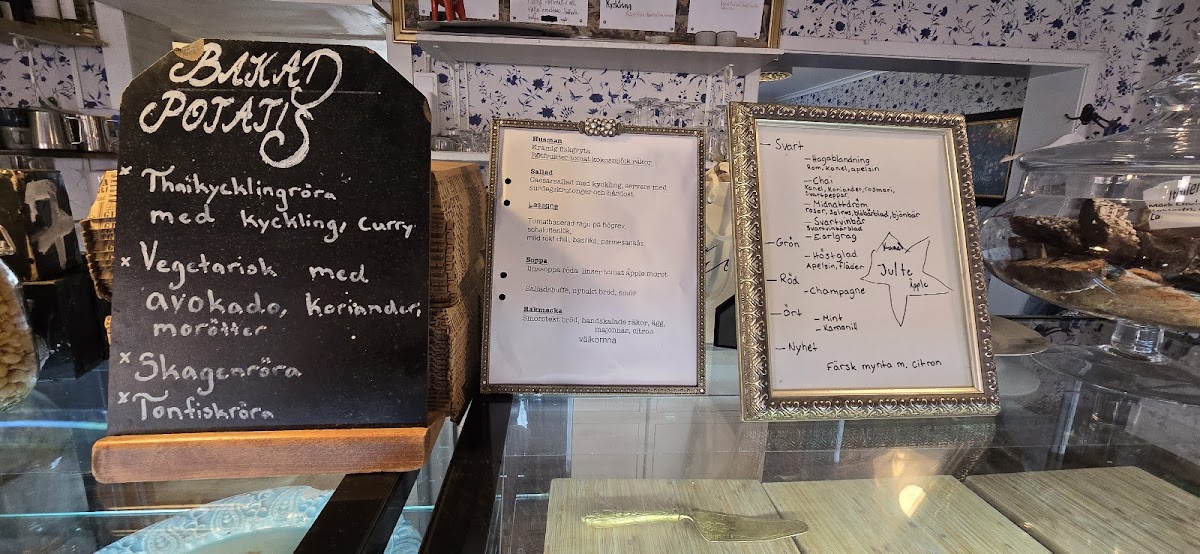 BAKAD
POTATIS
x Thaikycklingröra
med kyckling, curry.
x Vegetarisk med
avokado, koriander,
morötter
x Skagenröra
x Tonfiskröra
Husman
Krämig fiskgryta
tomat kokosmjölk räkor
Sallad
Caesarsallad med kyckling, servers med
surdegskrutonger och hårdost.
Lasagne
Tomatbaserad ragu på högrev,
schalottenlök,
mild rökt chili, basilika, parmesansås
Soppa
linssoppa röda linser tomat äpple morot
Salladsbuffé, nybakt bröd, smör
Räkmacka
Smörstekt bröd, handskalade räkor, ägg,
majonnäs, citron
välkomna
— Svart
— Hagablandning
Rom, kanel, apelsin
— Chai
Kanel, koriander, rosmari,
svartpeppar.
— Midnattdröm
rosor, solros, blåbärblad, björbär
— Svartvinbär
Svartvinbärblad
— Earlgrag
— Grön
— Höstglad
Apelsin, fläder
— Röd
— Champagne
— Ört
— Mint
— Kamomill
— Nyhet
Färsk mynta m. citron
Kanel
Julte
Äpple
Kyckling